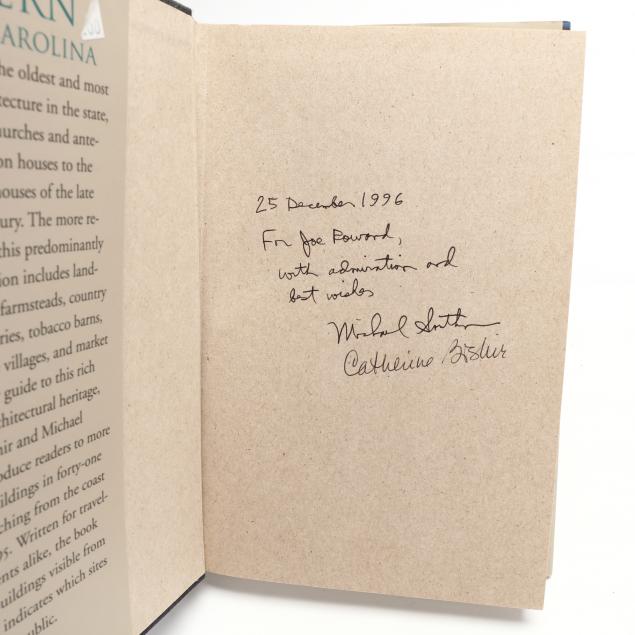 ERN
.00
CAROLINA
he oldest and most
tecture in the state,
hurches and ante-
on houses to the
houses of the late
ury. The more re-
this predominantly
ion includes land-
farmsteads, country
ries, tobacco barns,
villages, and market
guide to this rich
chitectural heritage,
hir and Michael
oduce readers to more
ildings in forty-one
ching from the coast
95. Written for travel-
nts alike, the book
uildings visible from
indicates which sites
ublic.
25 December 1996
For Joe Howard,
with admiration and
best wishes
Michael Southern
Catherine Bishir